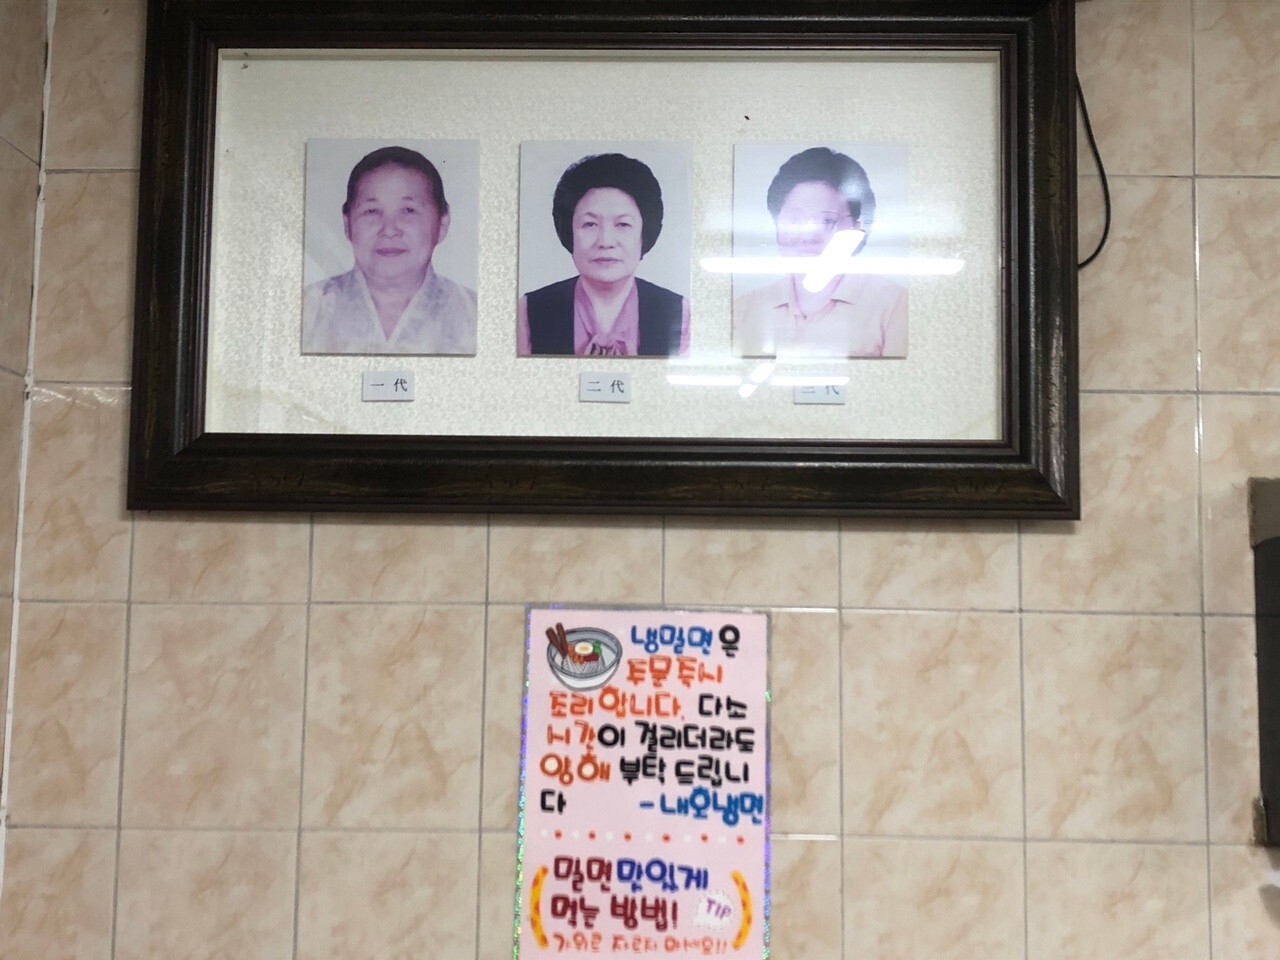 一代
二代
三代
냉밀면은
주문즉시
조리합니다. 다소
시간이 걸리더라도
양해 부탁 드립니
다 -내호냉면
밀면 맛있게
먹는 방법! TIP
가위로 자르지 마세요!!